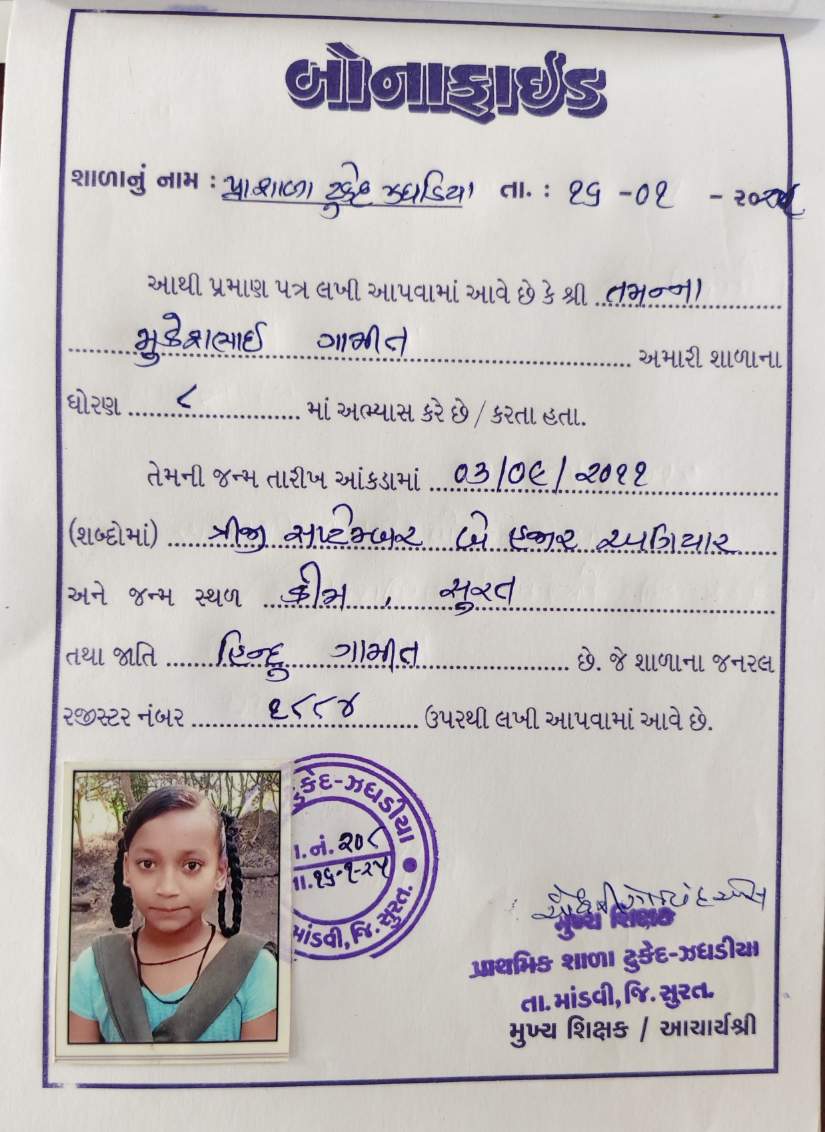 બોનાફાઇડ
શાળાનું નામ : પ્રા શાળા ટુકેદ ઝઘડિયા તા. : ૧૬ -૦૧ - ૨૦૨૫
આથી પ્રમાણ પત્ર લખી આપવામાં આવે છે કે શ્રી તમન્ના
મુકેશભાઈ ગામીત અમારી શાળાના
ધોરણ ૮ માં અભ્યાસ કરે છે / કરતા હતા.
તેમની જન્મ તારીખ આંકડામાં ૦૩/૦૯/૨૦૧૧
(શબ્દોમાં) ત્રીજી સપ્ટેમ્બર બે હજાર અગિયાર
અને જન્મ સ્થળ કીમ, સુરત
તથા જાતિ હિન્દુ ગામીત છે. જે શાળાના જનરલ
રજીસ્ટર નંબર ૧૮૮૪ ઉપરથી લખી આપવામાં આવે છે.
કેદ-ઝઘડીયા
.નં. ૨૦૮
.૧૬-૧-૨૫
માંડવી, જિ. સુરત.
મુખ્ય શિક્ષક
પ્રાથમિક શાળા ટુકેદ-ઝઘડીયા
તા. માંડવી, જિ. સુરત.
મુખ્ય શિક્ષક / આચાર્યશ્રી